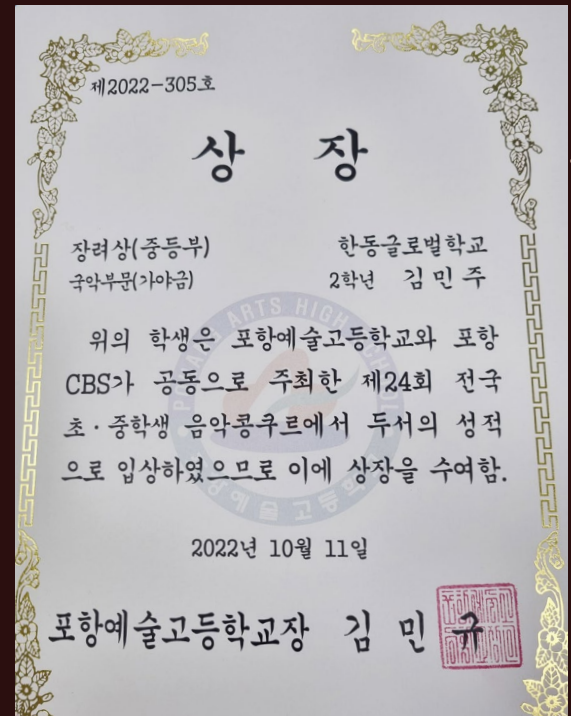 제2022-305호
상 장
장려상(중등부) 한동글로벌학교
국악부문(가야금) 2학년 김민주
위의 학생은 포항예술고등학교와 포항
CBS가 공동으로 주최한 제24회 전국
초·중학생 음악콩쿠르에서 두서의 성적
으로 입상하였으므로 이에 상장을 수여함.
2022년 10월 11일
포항예술고등학교장 김민규